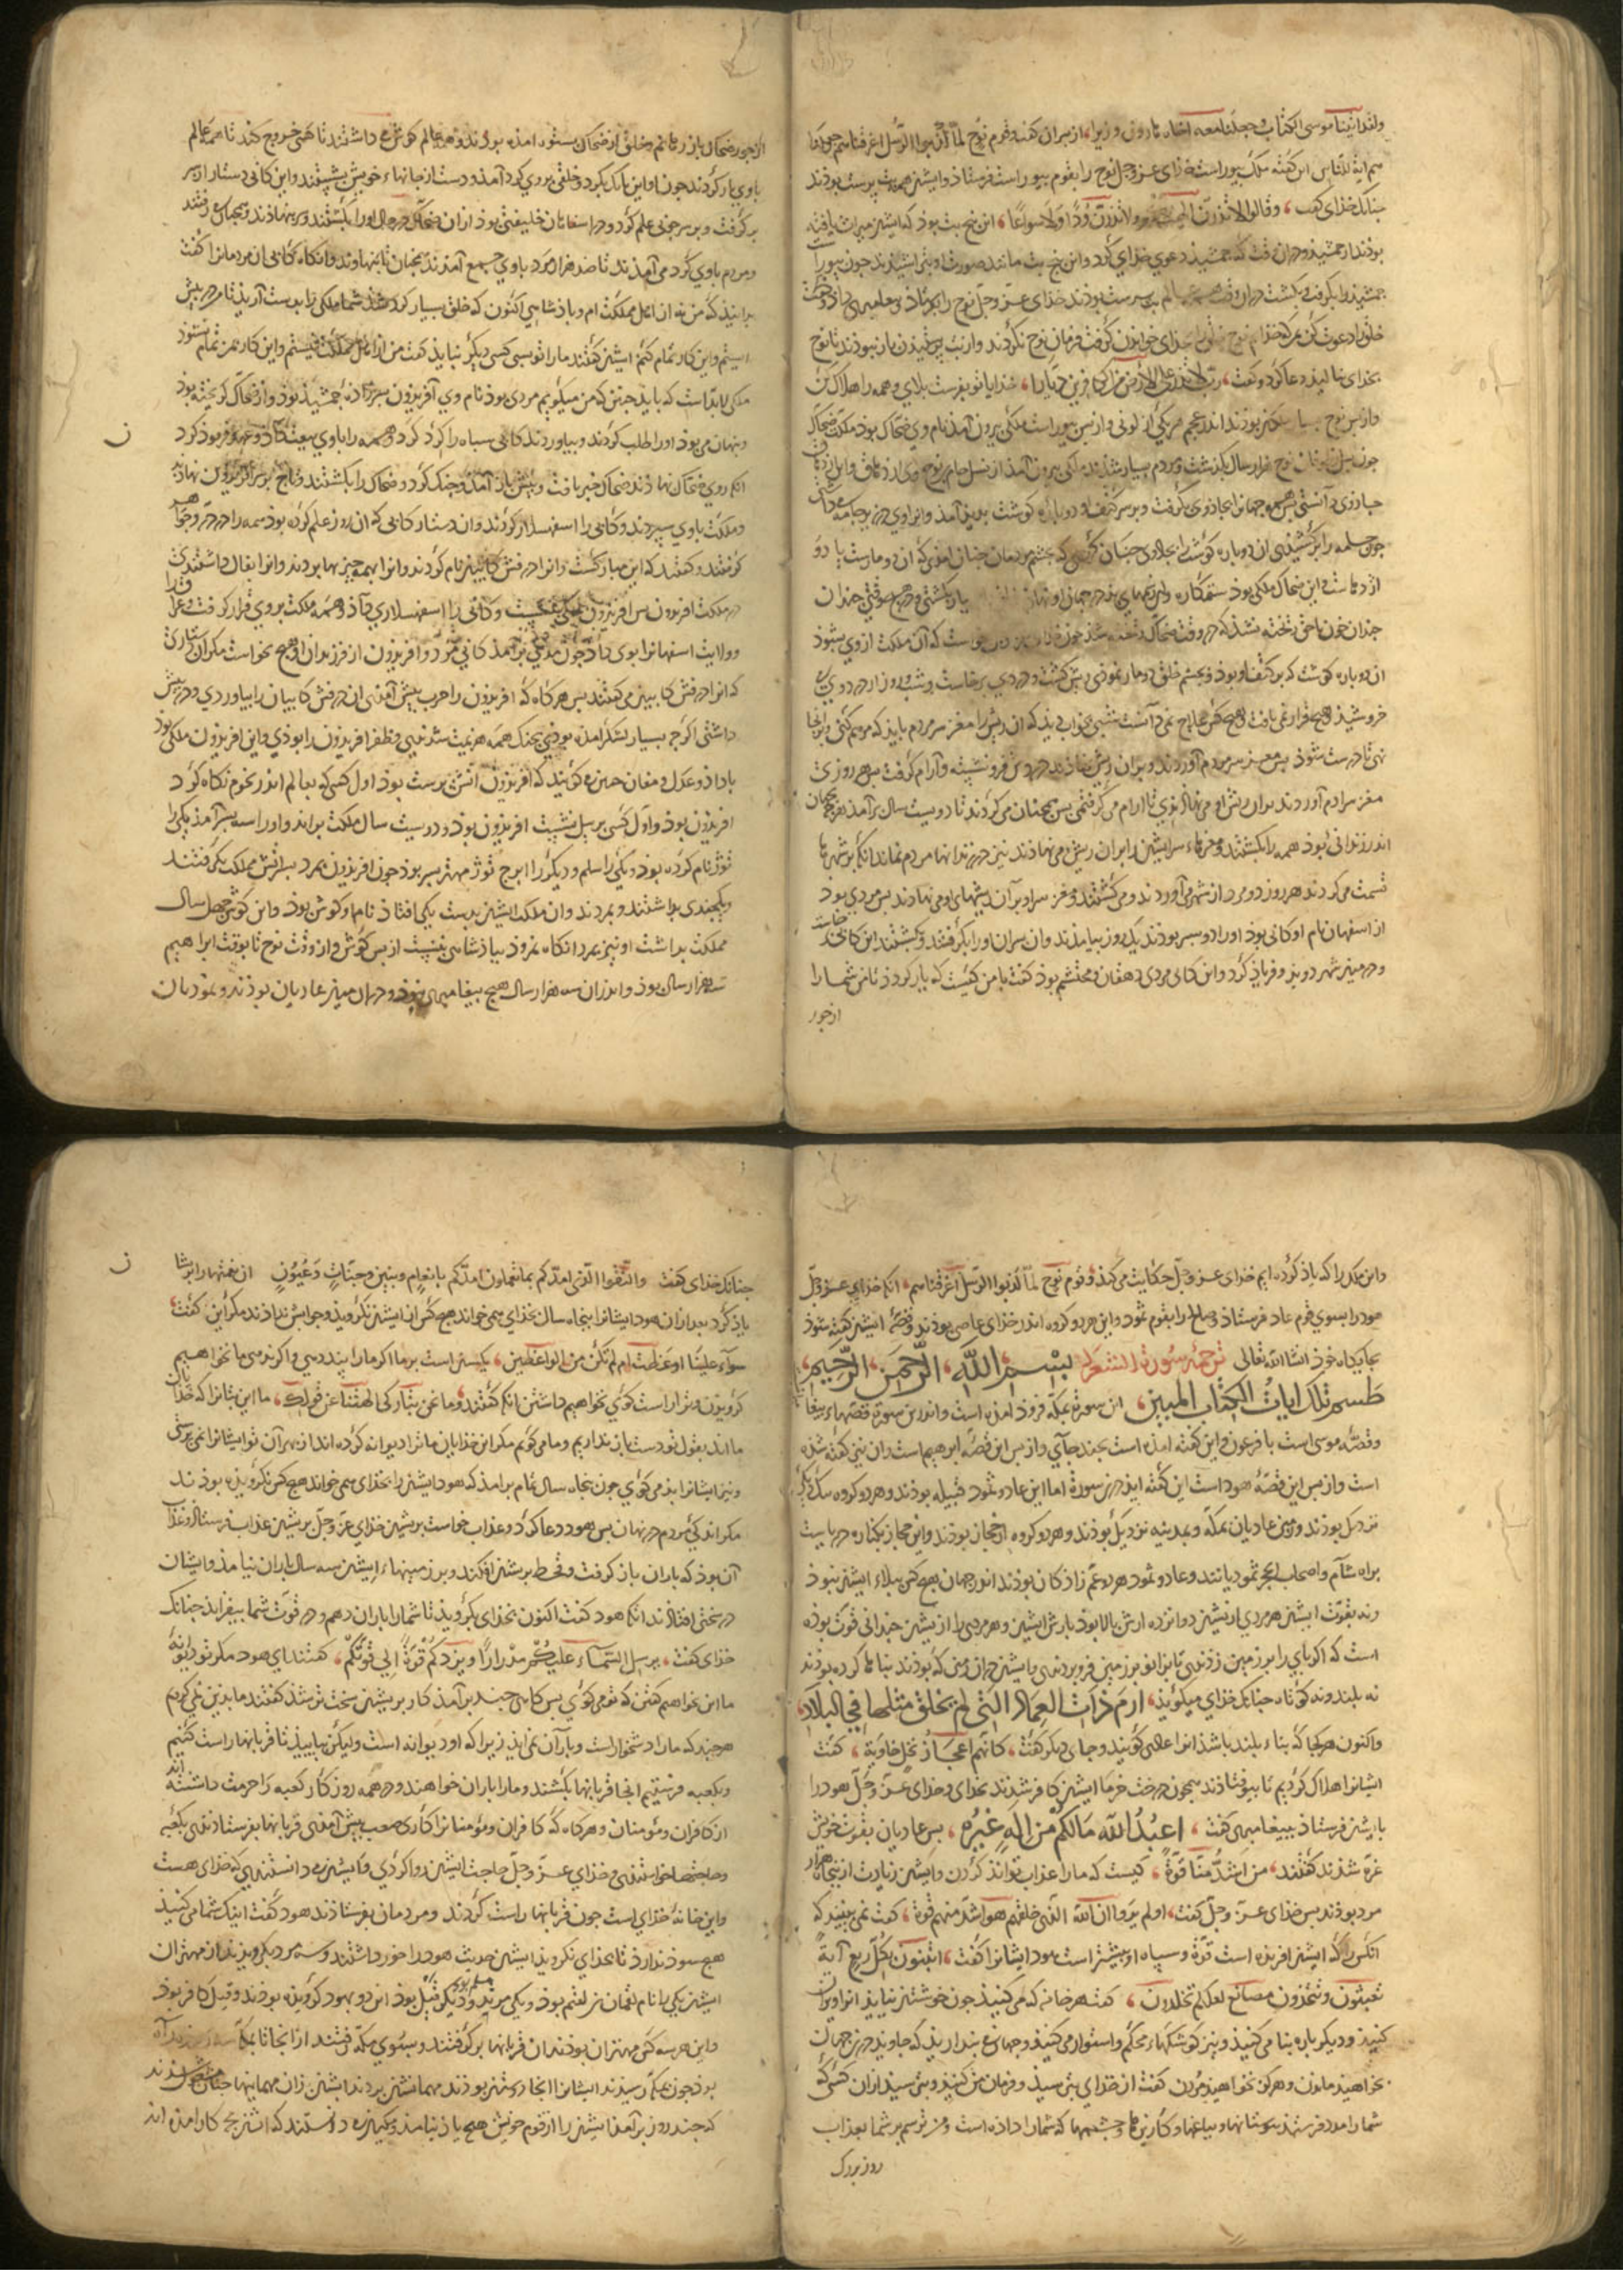 ولقد اتینا موسی الکتاب وجعلنا معه اخاه هارون وزیرا، از بس ان کفت وقوم نوح لما کذبوا الرسل اغرقناهم وجعلنا
هم ایة للناس این کفته ملک بیوراست خدای عز وجل نوح را بقوم بیوراست فرستاذ وایشن همه بت برست بوذند
جنانک خدای کفت، وقالوا لا تذرن الهتکم ولا تذرن ودا ولا سواعا، این بنج بت بوذ که ایشن میراث یافته
بوذند از جمشیذ ودران وقت که جمشیذ دعوی خدای کرد واین بنج بت مانند صورت او بتراشیذند جون بیوراسب
جمشیذ را بکرفت وبکشت دران وقت همه عالم بت برست بوذند خدای عز وجل نوح را بر کماشت وبیغامبری داذ وکفت
خلق را دعوت کن بمن که خدایم نوح خلق را بخدای خواندن کرفت فرمان نوح نکردند واز بت برستیذن باز نبوذند تا نوح
بخدای بنالیذ ودعا کرد وکفت، رب لا تذر علی الارض من الکافرین دیارا، خدایا تو بفرست بلای وهمه را هلاک کن
واز بس نوح
جون بس از نوح هزار سال بکذشت ومردم بسیار شدند
جون جامه را برکشیذی ان دو باره کوشت را بجنبانیدی جنان که بجشم مردمان جنان امذی که ان دو مارست یا دو
اژدهاست واین ضحاک ملکی بوذ ستمکاره
جندان خون ناحق ریخته نشد که در وقت ضحاک
ان دو باره کوشت که بر کتف او بوذ وبجشم خلق دو مار نموذی ریش کشت ودردی برخاست وشب وروز از درد وی
خروشیذ وهیج قرار نمی یافت وهیج کس علاج نمی دانست شبی بخواب دیذ که ان ریش را مغز سر مردم بایذ که مرهم کنی وبرانجا
نهی تا درست شوذ بس مغز سر مردم آوردند وبران ریش نهاذند درد وی فرو نشست وآرام کرفت بس هر روزی
مغز سر آدم آوردند بران ریش او می نهاذندی تا ارام می کرفتی بس همجنان می کردند تا دویست سال برآمذ هر جه
اندر زندانی بوذ همه را بکشتند ومغزهاء سر ایشن را بران ریش می نهاذند نیز در زندانها مردم نماند انکه بر شهرها
قسمت می کردند هر روز دو مرد از شهر می آوردند ومی کشتند ومغز سر او بر آن ریشها می نهاذند بس مردی بوذ
از اسفهان نام او کابی بوذ او را دو بسر بوذند یک روز بیامذند وان بسران او را بکرفتند وبکشتند این کابی
ودر میان شهر دویذ وفریاذ کرد واین کابی مردی دهقان ومحتشم بوذ کفت با من کیست که یار کردذ تا من شما را
از جور
از جور ضحاک باز رهانم وخلق از ضحاک بستوه امذه بوذند وهمه عالم کوش می داشتند تا کی خروج کند تا همه عالم
با وی یار کردند جون او این بانک بکرد وخلقی بر وی کرد آمذ ودست از جانهاء خویش بشستند واین کابی دستار از سر
برکرفت وبر سر جوبی علم کرد
ومردم با وی کرد می آمذند تا صد هزار مرد با وی جمع آمذند
بدانیذ که من نه از اهل مملکت ام وباذشاهی اکنون که خلق بسیار کرد شد شما ملکی را بدست آریذ تا من در بیش
ایستم واین کار تمام کنم ایشن کفتند ما را تو بسی کسی دیکر نبایذ کفت من از اهل مملکت نیستم واین کار بمن تمام نشوذ
ملکی لابد است که بایذ جستن که من میکویم مردی بوذ نام وی آفریذون بسرزاذه جمشیذ بوذ واز ضحاک کریخته بوذ
وبنهان می بوذ او را طلب کردند وبیاوردند کابی سباه را کرد کرد وهمه را با وی بیعت داد
انکه روی بضحاک نهاذند ضحاک خبر یافت وبیش باز آمذ وجنک کرد وضحاک را بکشتند وتاج بر سر افریذون نهاذند
ومملکت با وی سبردند وکابی را اسفهسلار کردند وان دستار کابی که ان روز علم کرده بوذ همه را در در وجواهر
کرفتند وکفتند که این مبارکست وانرا درفش کابیین نام کردند
در مملکت افریذون بس افریذون بملکی بنشست وکابی را اسفهسلاری داذ وهمه مملکت بر وی قرار کرفت
وولایت اسفهانرا بوی داذ
که انرا درفش کابیین می کفتند بس هر کاه که افریذون را حرب بیش آمذی ان درفش کابیان را بیاوردی ودر بیش
داشتی اکر جه بسیار لشکر امذه بوذی بجنک همه هزیمت شدندی وظفر افریذون را بوذی واین افریذون ملکی بوذ
با داذ وعدل ومغان جنین می کویند که افریذون آتش برست بوذ اول کسی که بعالم اندر نجوم نکاه کرد
افریذون بوذ واول کسی بر بیل نشست افریذون بوذ ودویست سال مملکت براند واو را سه بسر آمذ یکی را
توژ نام کرده بوذ ودیکری را سلم ودیکر را ایرج توژ مهتر بسر بوذ جون افریذون بمرد بسرانش مملکت بکرفتند
ویکجندی بداشتند وبمردند وان مملکت ایشین بدست یکی افتاذ نام او کوش بوذ واین کوش جهل سال
مملکت بداشت او نیز بمرد انکاه نمروذ بباذشاهی بنشست از بس کوش واز وقت نوح تا بوقت ابراهیم
سه هزار سال بوذ واندران سه هزار سال هیج بیغامبری نبوذ ودران میان عادیان بوذند وثموذیان
واین ملکان را که یاذ کرده ایم خدای عز وجل حکایت می کند وقوم نوح لما کذبوا الرسل اغرقناهم، انکه خدای عز وجل
هود را بسوی قوم عاد فرستاذ وصالح را بقوم ثمود واین هر دو کروه اندر خدای عاصی بوذند وقصهٔ ایشن کفته شوذ
بجایکاه خوذ انشا الله تعالی ترجمهٔ سورة الشعراء بسم الله الرحمن الرحیم،
طسم تلک ایات الکتاب المبین، این سورة بمکه فروذ امذه است واندرین سورة قصهاء بیغامبران
وقصهٔ موسی است با فرعون واین کفته امذه است بجند جای واز بس این قصهٔ ابرهیم است وان نیز کفته شذه
است واز بس این قصهٔ هود است این کفته ایذ درین سورة اما این عاد وثمود دو قبیله بوذند وهر دو کروه بیک دیکر
نزدیک بوذند وزمین عادیان بمکه وبمدینه نزدیک بوذند وهر دو کروه از حجاز بوذند واین حجاز بکناره دریاست
براه شام واصحاب الحجر ثمودیانند وعاد وثمود هر دو عم زاذکان بوذند اندر جهان هیج کس ببلاء ایشن نبوذ
ونه بقوت ایشن هر مردی از یشن دوانزده ارش بالا بوذ بارش ایشین وهر مردی را از یشن جندانی قوت بوذه
است که اکر بای را بر زمین زذندی تا بزانو بزمین فرو بردندی وایشن دران زمین که بوذند بناها کرده بوذند
نه بلند ونه کوتاه جنانک خدای میکویذ، ارم ذات العماد التی لم یخلق مثلها فی البلاد،
واکنون هر کجا که بناء بلند باشذ انرا عادی کویند وجای دیکر کفت، کانهم اعجاز نخل خاویة، کفت
ایشانرا هلاک کردیم تا بیوفتاذند همجون درخت خرما ایشن کافر شذند بخدای وخدای عز وجل هود را
بایشن فرستاذ ببیغامبری کفت، اعبدوا الله مالکم من اله غیره، بس عادیان بقوت خویش
غره شذند کفتند، من اشد منا قوة، کیست که ما را عذاب تواند کردن وایشن زیادت از بنجاه هزار
مرد بوذند بس خدای عز وجل کفت، اولم یروا ان الله الذی خلقهم هو اشد منهم قوة، کفت نمی بینند که
انکس که ایشن افریذه است قوة وسباه او بیشترست هود ایشانرا کفت، اتبنون بکل ریع آیة
تعبثون وتتخذون مصانع لعلکم تخلدون، کفت هر خانه که می کنیذ جون خوشتر نیایذ انرا ویران
کنیذ ودیکر باره بنا می کنیذ ونیز کوشکهاء محکم واستوار می کنیذ وجهانی بنداریذ که جاویذ درین جهان
بخواهیذ ماندن وهرکز نخواهیذ مردن کفت از خدای بترسیذ وفرمان من کنیذ وبترسیذ از ان کسی که
شما را مدد فرستذ ببوستانها وباغها وکاریزها وجشمها که شما را داذه است ومن ترسم بر شما بعذاب
روز بزرک
جنانک خدای کفت واتقوا الذی امدکم بما تعلمون امدکم بانعام وبنین وجنات وعیون ان نعمتها را بریشا
یاذ کرد بعد ازان هود ایشانرا بنجاه سال بخدای همی خواند هیج کس از ایشن نکرویذ وجوابش نداذند مکر این کفت،
سوآء علینا اوعظت ام لم تکن من الواعظین، یکسنست بر ما اکر ما را بند دهی واکر ندهی ما نخواهیم
کرویذن وترا راست کوی نخواهیم داشتن انکه کفتند، وما نحن بتارکی الهتنا عن قولک، ما این بتانرا که خدایان
مااند بقول تو دست بازنداریم وما می کویم مکر این خدایان ما ترا دیوانه کرده اند از بهر آن تو ایشانرا نمی برستی
ونیز ایشانرا بذ می کوی جون بنجاه سال تمام برامذ که هود ایشنرا بخدای همی خواند هیج کس نکرویذه بوذند
مکر اندکی مردم در نهان بس هود دعا کرد وعذاب خواست بریشن خدای عز وجل بریشن عذاب فرستاذ وعذاب
آن بوذ که باران باز کرفت وقحط بریشن افکند وبر زمینهاء ایشین سه سال باران نیامذ وایشان
در سختی افتاذند انکه هود کفت اکنون بخدای بکرویذ تا شما را باران دهم ودر قوت شما بیفزایذ جنانک
خدای کفت، یرسل السماء علیکم مدرارا ویزدکم قوة الی قوتکم، کفتند ای هود مکر تو دیوانهٔ
ما این نخواهیم کفتن که تو می کوی بس کاهی جند برآمذ کار بریشن سخت تر شذ کفتند ما بذین نمی کرویم
هر جند که ما را دشخوارست وباران نمی ایذ زیرا که او دیوانه است ولیکن بیاییذ تا قربانها راست کنیم
وبکعبه فرستیم انجا قربانها بکشند وما را باران خواهند ودر همه روزکار کعبه را حرمت داشته اند
از کافران ومؤمنان وهر کاه که کافران ومؤمنانرا کاری صعب بیش آمذی قربانها بفرستاذندی بکعبه
وحاجتها خواستندی وخدای عز وجل حاجت ایشین روا کردی وایشن می دانستندی که خدای هست
واین خانهٔ خدای است جون قربانها راست کردند ومردمان بفرستاذند هود کفت اینک شما می کنیذ
هیج سوذ ندارد تا بخدای نکرویذ ایشن حدیث هود را خوار داشتند وسه مرد بکزیذند از مهتران
ایشن یکی را نام لقمان بن لقیم بوذ ویکی مرثد ودیکر قیل بوذ این دو بهود کرویذه بوذند وقیل کافر بوذ
واین هر سه کس مهتران بوذند ان قربانها برکرفتند وبسوی مکه رفتند از انجا تا بمکه سه روزه راه
بوذ جون بمکه رسیذند
که جند روز برآمذ ایشنرا از قوم خویش هیج یاذ نیامذ